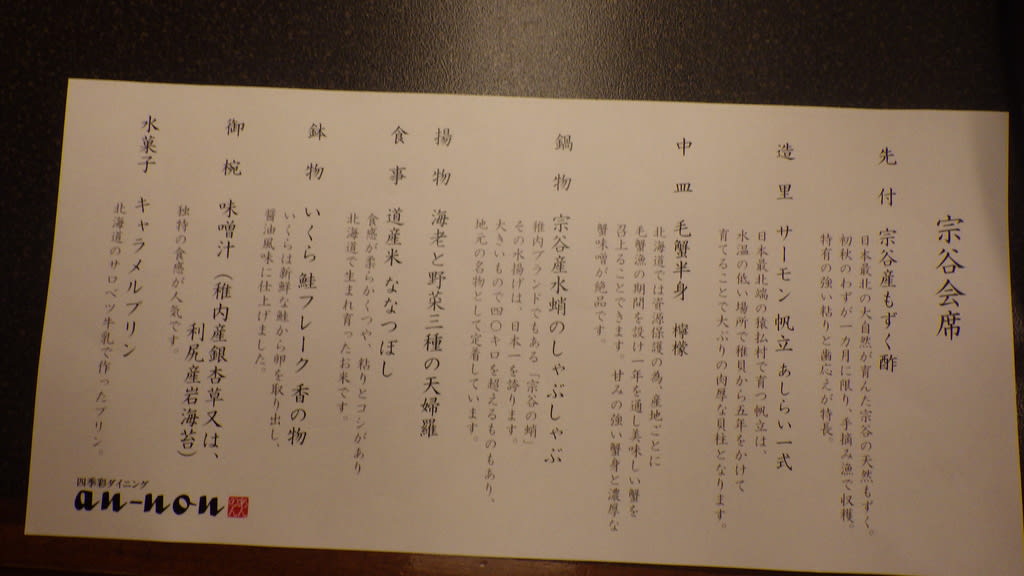 宗谷会席
先付 宗谷産もずく酢
日本最北の大自然が育んだ宗谷の天然もずく。
初秋のわずが一カ月に限り、手摘み漁で収穫。
特有の強い粘りと歯応えが特長。
造里 サーモン 帆立 あしらい一式
日本最北端の猿払村で育つ帆立は、
水温の低い場所で稚貝から五年をかけて
育てることで大ぶりの肉厚な貝柱となります。
中皿 毛蟹半身 檸檬
北海道では資源保護の為、産地ごとに
毛蟹漁の期間を設け一年を通し美味しい蟹を
召上ることできます。甘みの強い蟹身と濃厚な
蟹味噌が絶品です。
鍋物 宗谷産水蛸のしゃぶしゃぶ
稚内ブランドでもある「宗谷の蛸」
その水揚げは、日本一を誇ります。
大きいもので四〇キロを超えるものもあり、
地元の名物として定着しています。
揚物 海老と野菜三種の天婦羅
食事 道産米 ななつぼし
食感が柔らかくつや、粘りとコシがあり
北海道で生まれ育ったお米です。
鉢物 いくら 鮭フレーク 香の物
いくらは新鮮な鮭から卵を取り出し、
醤油風味に仕上げました。
御椀 味噌汁（稚内産銀杏草又は、
利尻産岩海苔）
独特の食感が人気です。
水菓子 キャラメルプリン
北海道のサロベツ牛乳で作ったプリン。
四季彩ダイニング
an-non